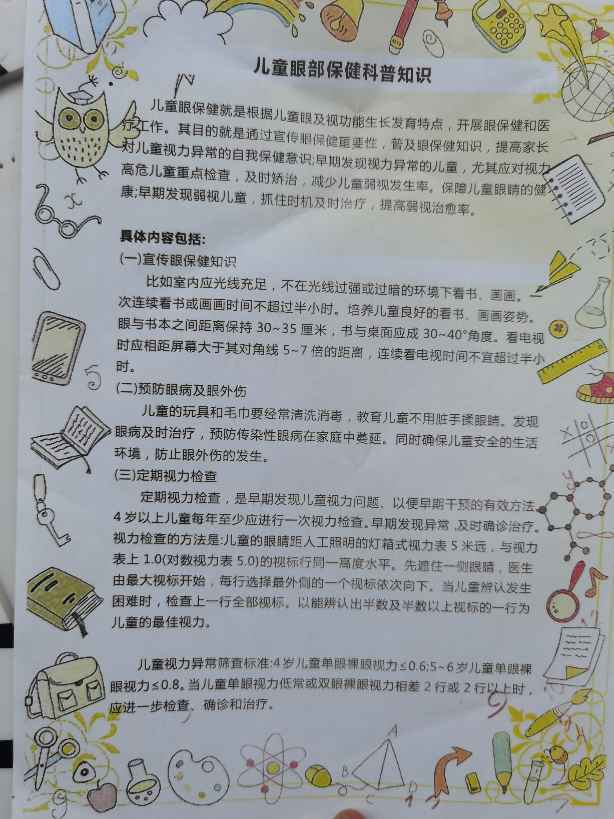 儿童眼部保健科普知识
儿童眼保健就是根据儿童眼及视功能生长发育特点，开展眼保健和医
疗工作。其目的就是通过宣传眼保健重要性，普及眼保健知识，提高家长
对儿童视力异常的自我保健意识;早期发现视力异常的儿童，尤其应对视力
高危儿童重点检查，及时矫治，减少儿童弱视发生率。保障儿童眼睛的健
康;早期发现弱视儿童，抓住时机及时治疗，提高弱视治愈率。
具体内容包括:
(一)宣传眼保健知识
比如室内应光线充足，不在光线过强或过暗的环境下看书、画画。一
次连续看书或画画时间不超过半小时。培养儿童良好的看书、画画姿势。
眼与书本之间距离保持 30~35 厘米，书与桌面应成 30~40°角度。看电视
时应相距屏幕大于其对角线 5~7 倍的距离，连续看电视时间不宜超过半小
时。
(二)预防眼病及眼外伤
儿童的玩具和毛巾要经常清洗消毒，教育儿童不用脏手揉眼睛。发现
眼病及时治疗，预防传染性眼病在家庭中蔓延。同时确保儿童安全的生活
环境，防止眼外伤的发生。
(三)定期视力检查
定期视力检查，是早期发现儿童视力问题、以便早期干预的有效方法。
4 岁以上儿童每年至少应进行一次视力检查。早期发现异常,及时确诊治疗。
视力检查的方法是:儿童的眼睛距人工照明的灯箱式视力表 5 米远，与视力
表上 1.0(对数视力表 5.0)的视标行同一高度水平。先遮住一侧眼睛，医生
由最大视标开始，每行选择最外侧的一个视标依次向下。当儿童辨认发生
困难时，检查上一行全部视标。以能辨认出半数及半数以上视标的一行为
儿童的最佳视力。
儿童视力异常筛查标准:4 岁儿童单眼裸眼视力≤0.6;5~6 岁儿童单眼裸
眼视力≤0.8。当儿童单眼视力低常或双眼裸眼视力相差 2 行或 2 行以上时，
应进一步检查、确诊和治疗。
A
B
C
D